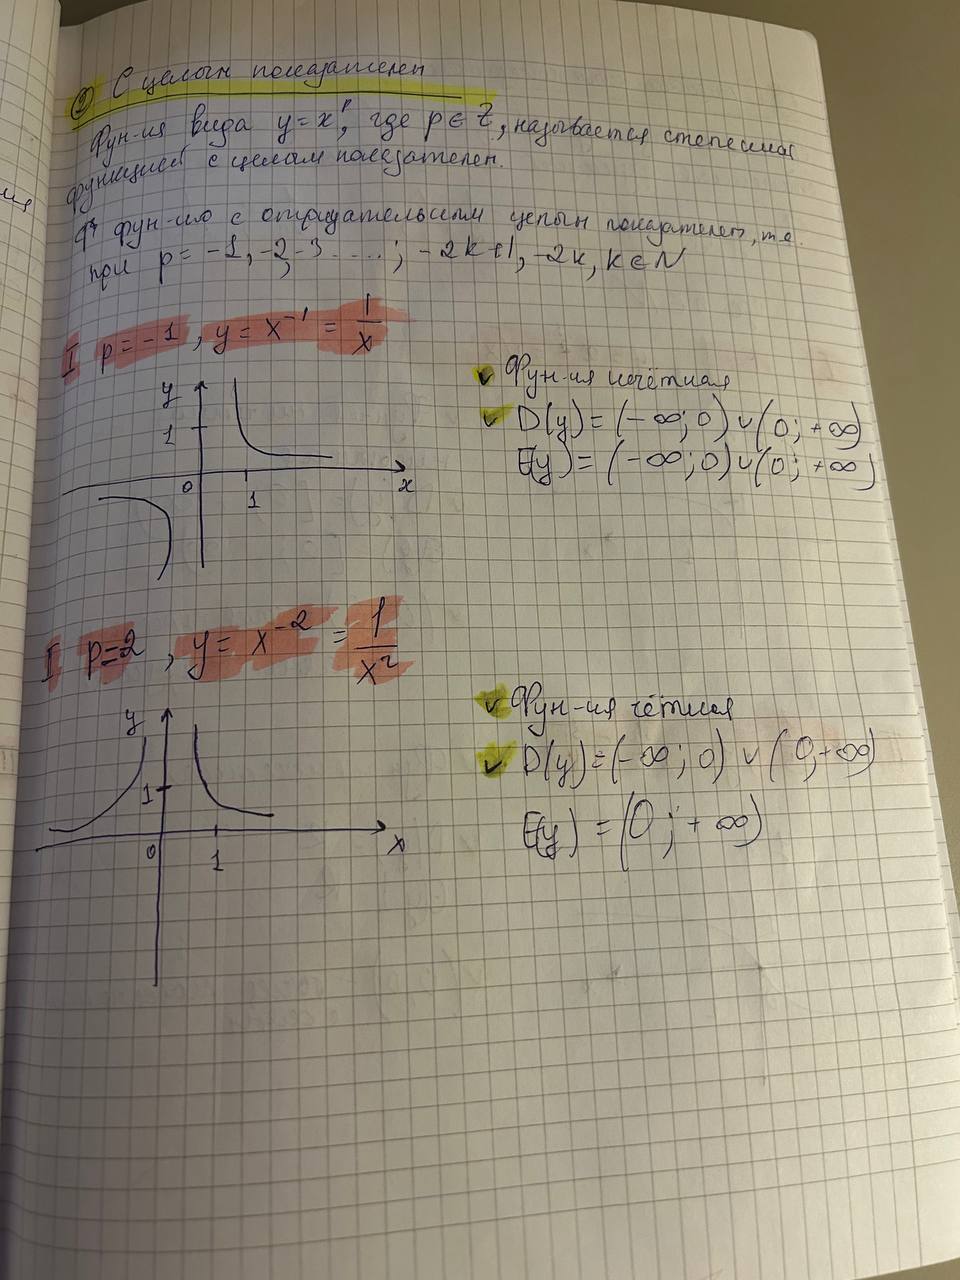 ② С целым показателем
Фун-ия вида y = x^p, где p ∈ Z, называется степенной
функцией с целым показателем.
фун-ию с отрицательным целым показателем, т.е.
при p = -1, -2, -3 .....; -2k+1, -2k, k ∈ N
I p = -1, y = x⁻¹ = 1/x
✓ Фун-ия нечётная
✓ D(y) = (-∞; 0) ∪ (0; +∞)
E(y) = (-∞; 0) ∪ (0; +∞)
y
1
0
1
x
I p = 2, y = x⁻² = 1/x²
✓ Фун-ия чётная
✓ D(y) = (-∞; 0) ∪ (0; +∞)
E(y) = (0; +∞)
y
1
0
1
x